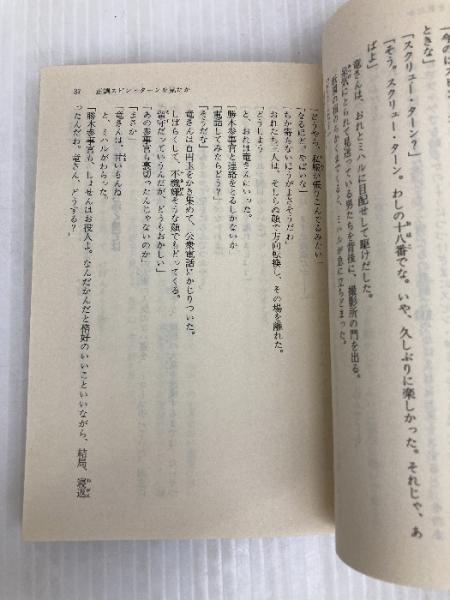 「今のはスピン
ときな」
「スクリュー・ターン？」
「そう。スクリュー・ターン。わしの十八番でな。いや、久しぶりに楽しかった。それじゃ、あ
ばよ」
竜さんは、おれとミハルに目配せして駆けだした。
呆気にとられて見送っている男たちを背後に、撮影所の門を出る。
ミハルが急に立ちどまった。
37 正調スピン・ターンを見たか
「どうやら、私服が張りこんでるみたい」
「なるほど。やばいな」
ちか寄らないほうがよさそうだわ」
おれたち三人は、そしらぬ顔で方向転換し、その場を離れた。
「どうしよう」
と、おれは竜さんにいった。
「勝木参事官と連絡をとるしかないか」
「電話してみたらどう？」
「そうだな」
竜さんは十円玉をかき集めて、公衆電話にかじりついた。
しばらくして、不機嫌そうな顔でもどってくる。
「留守だっていうんだが、どうもおかしい」
「あの参事官も裏切ったんじゃないのか」
「まさか」
「竜さんは、甘いもんね」
と、ミハルがわらった。
「勝木参事官も、しょせんはお役人よ。なんだかんだと格好のいいこといいながら、結局、寝返
ったんだわ。竜さん、どうする？」